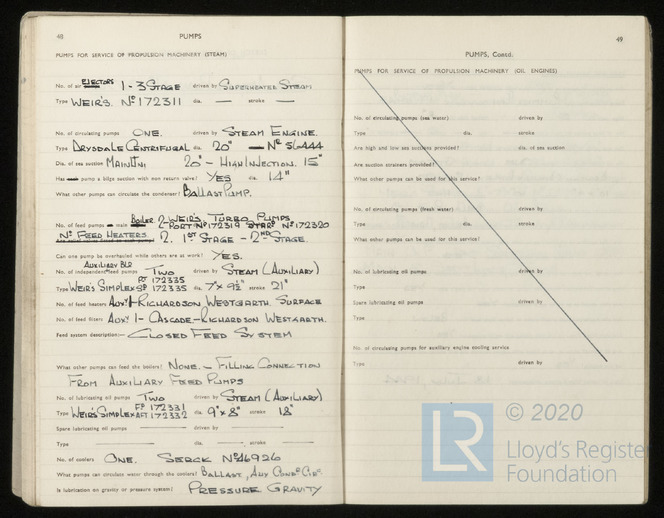 48 PUMPS
PUMPS FOR SERVICE OF PROPULSION MACHINERY (STEAM)
No. of air EJECTORS 1 - 3 STAGE driven by SUPERHEATED STEAM
Type WEIR'S. No 172311 dia. — stroke —
No. of circulating pumps ONE. driven by STEAM ENGINE.
Type DRYSDALE CENTRIFUGAL dia. 20" — No 56444
Dia. of sea suction MAIN INJ 20" - HIGH INJECTION. 15"
Has pump a bilge suction with non return valve? YES dia. 14"
What other pumps can circulate the condenser? BALLAST PUMP.
No. of feed pumps — main Boiler 2 WEIR'S TURBO PUMPS
PORT No 172319 STARD No 172320
No FEED HEATERS. 2. 1ST STAGE - 2ND STAGE.
Can one pump be overhauled while others are at work? YES.
AUXILIARY BLR
No. of independent feed pumps TWO driven by STEAM (AUXILIARY)
Type WEIR'S SIMPLEX PT 172335 SD 172335 dia. 7" x 9½" stroke 21"
No. of feed heaters AUXY 1 - RICHARDSON WESTGARTH. SURFACE
No. of feed filters AUXY 1 - CASCADE - RICHARDSON WESTGARTH.
Feed system description - CLOSED FEED SYSTEM
What other pumps can feed the boilers? NONE. - FILLING CONNECTION
FROM AUXILIARY FEED PUMPS
No. of lubricating oil pumps TWO driven by STEAM (AUXILIARY)
Type WEIR'S SIMPLEX FD 172331 AFT 172332 dia. 9" x 8" stroke 18"
Spare lubricating oil pumps — driven by —
Type — dia. — stroke —
No. of coolers ONE. SERCK No 46926
What pumps can circulate water through the coolers? BALLAST, AUX CONDR CIR.
Is lubrication on gravity or pressure system? PRESSURE GRAVITY
49
PUMPS, Contd.
PUMPS FOR SERVICE OF PROPULSION MACHINERY (OIL ENGINES)
No. of circulating pumps (sea water) driven by
Type dia. stroke
Are high and low sea suctions provided? dia. of sea suction
Are suction strainers provided?
What other pumps can be used for this service?
No. of circulating pumps (fresh water) driven by
Type dia. stroke
What other pumps can be used for this service?
No. of lubricating oil pumps driven by
Type dia. stroke
Spare lubricating oil pumps driven by
Type dia. stroke
No. of circulating pumps for auxiliary engine cooling service
Type driven by
LR © 2020
Lloyd's Register
Foundation